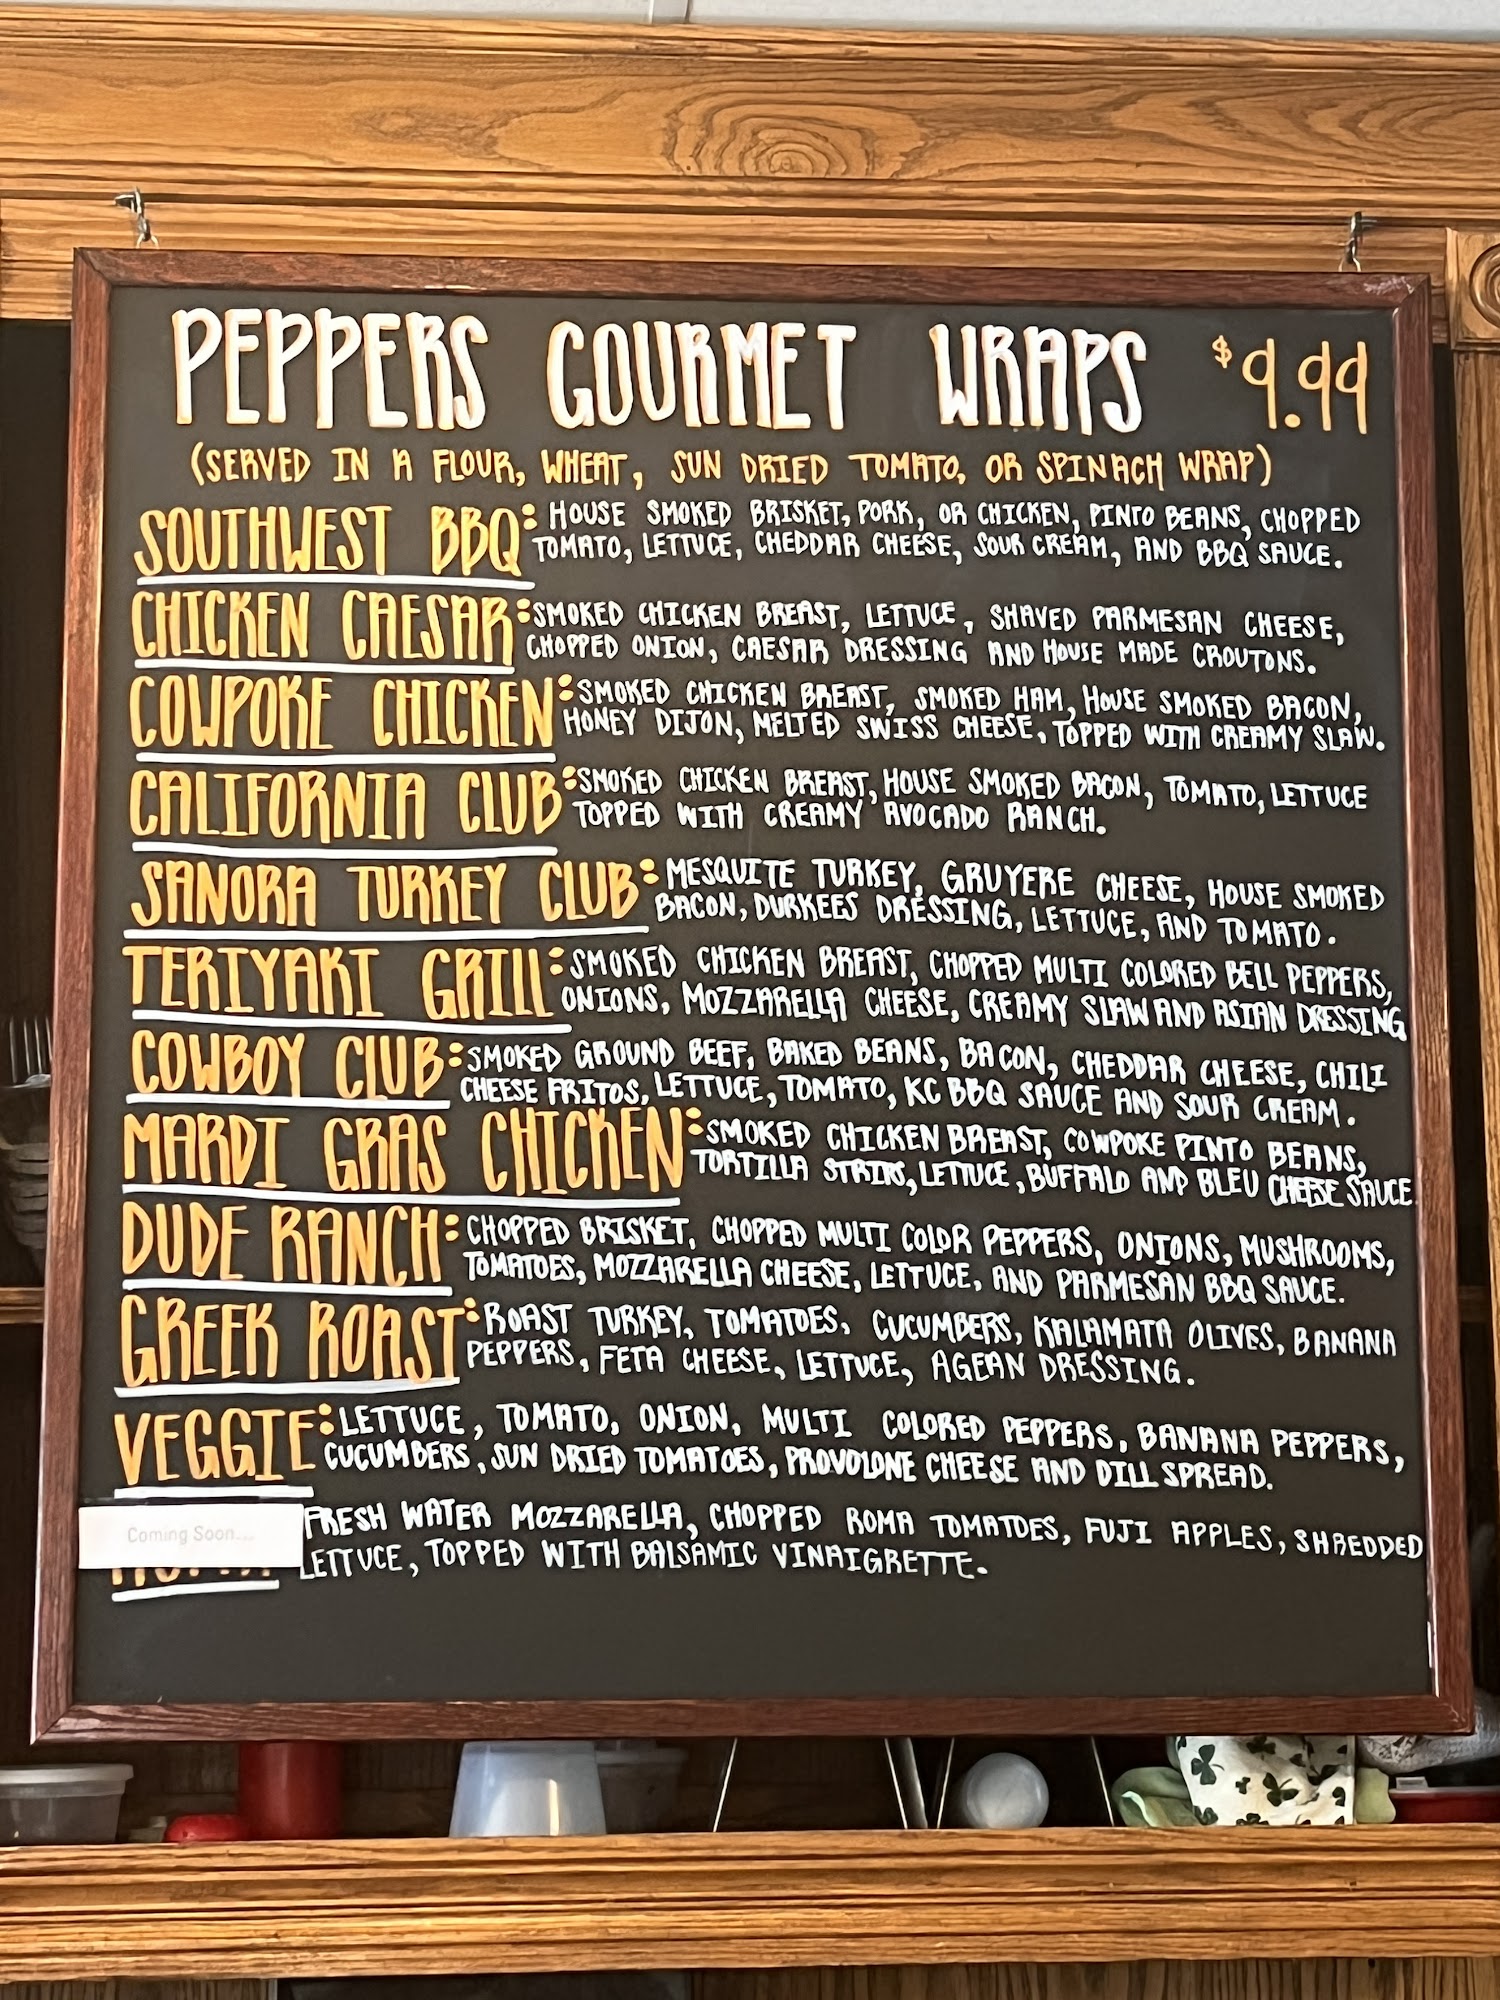 PEPPERS GOURMET WRAPS $9.99
(SERVED IN A FLOUR, WHEAT, SUN DRIED TOMATO, OR SPINACH WRAP)
SOUTHWEST BBQ: HOUSE SMOKED BRISKET, PORK, OR CHICKEN, PINTO BEANS, CHOPPED
TOMATO, LETTUCE, CHEDDAR CHEESE, SOUR CREAM, AND BBQ SAUCE.
CHICKEN CAESAR: SMOKED CHICKEN BREAST, LETTUCE, SHAVED PARMESAN CHEESE,
CHOPPED ONION, CAESAR DRESSING AND HOUSE MADE CROUTONS.
COWPOKE CHICKEN: SMOKED CHICKEN BREAST, SMOKED HAM, HOUSE SMOKED BACON,
HONEY DIJON, MELTED SWISS CHEESE, TOPPED WITH CREAMY SLAW.
CALIFORNIA CLUB: SMOKED CHICKEN BREAST, HOUSE SMOKED BACON, TOMATO, LETTUCE
TOPPED WITH CREAMY AVOCADO RANCH.
SANORA TURKEY CLUB: MESQUITE TURKEY, GRUYERE CHEESE, HOUSE SMOKED
BACON, DURKEES DRESSING, LETTUCE, AND TOMATO.
TERIYAKI GRILL: SMOKED CHICKEN BREAST, CHOPPED MULTI COLORED BELL PEPPERS,
ONIONS, MOZZARELLA CHEESE, CREAMY SLAW AND ASIAN DRESSING
COWBOY CLUB: SMOKED GROUND BEEF, BAKED BEANS, BACON, CHEDDAR CHEESE, CHILI
CHEESE FRITOS, LETTUCE, TOMATO, KC BBQ SAUCE AND SOUR CREAM.
MARDI GRAS CHICKEN: SMOKED CHICKEN BREAST, COWPOKE PINTO BEANS,
TORTILLA STRIPS, LETTUCE, BUFFALO AND BLEU CHEESE SAUCE
DUDE RANCH: CHOPPED BRISKET, CHOPPED MULTI COLOR PEPPERS, ONIONS, MUSHROOMS,
TOMATOES, MOZZARELLA CHEESE, LETTUCE, AND PARMESAN BBQ SAUCE.
GREEK ROAST: ROAST TURKEY, TOMATOES, CUCUMBERS, KALAMATA OLIVES, BANANA
PEPPERS, FETA CHEESE, LETTUCE, AGEAN DRESSING.
VEGGIE: LETTUCE, TOMATO, ONION, MULTI COLORED PEPPERS, BANANA PEPPERS,
CUCUMBERS, SUN DRIED TOMATOES, PROVOLONE CHEESE AND DILL SPREAD.
Coming Soon... FRESH WATER MOZZARELLA, CHOPPED ROMA TOMATOES, FUJI APPLES, SHREDDED
LETTUCE, TOPPED WITH BALSAMIC VINAIGRETTE.